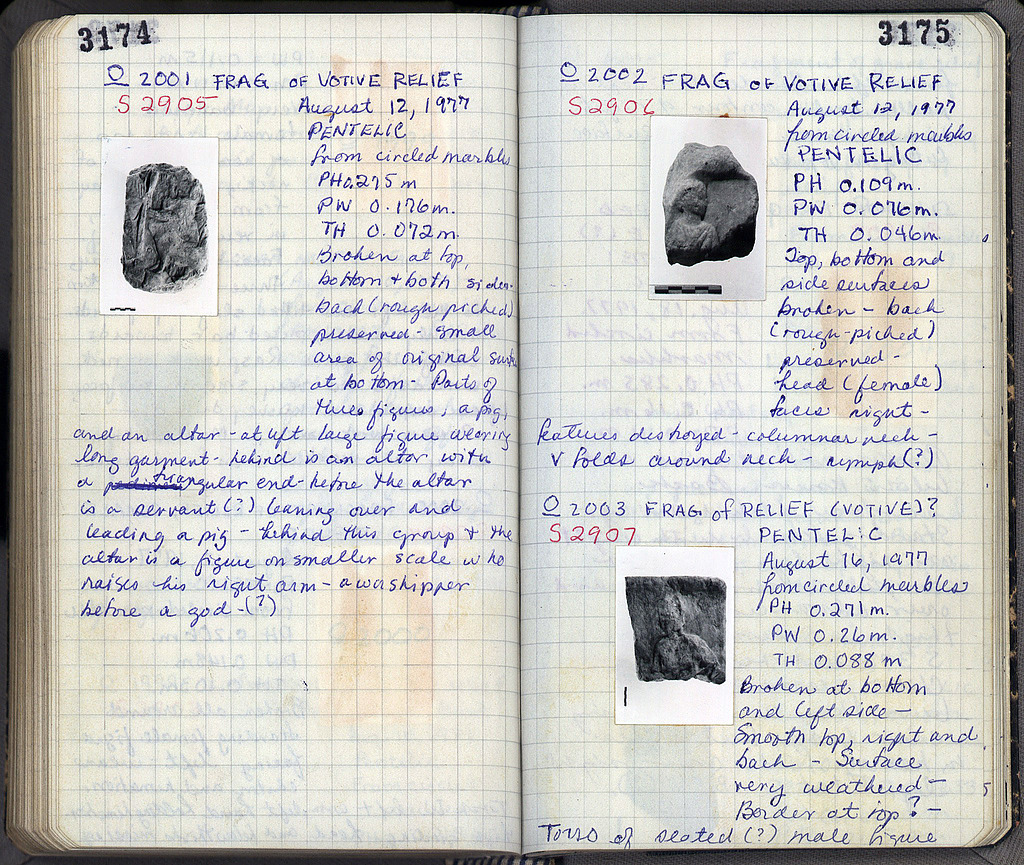 3174
O 2001 FRAG OF VOTIVE RELIEF
S 2905
August 12, 1977
PENTELIC
from circled marbles
PH 0.275 m
PW 0.176 m.
TH 0.072 m.
Broken at top,
bottom + both sides-
back (rough picked)
preserved - small
area of original
at bottom - Parts of
three figures, a pig,
and an altar - at left large figure wearing
long garment - behind is an altar with
a triangular end - before the altar
is a servant (?) leaning over and
leading a pig - behind this group + the
altar is a figure on smaller scale who
raises his right arm - a worshipper
before a god - (?)
3175
O 2002 FRAG OF VOTIVE RELIEF
S 2906
August 12, 1977
from circled marbles
PENTELIC
PH 0.109 m.
PW 0.076 m.
TH 0.046 m.
Top, bottom and
side surfaces
broken - back
(rough-picked)
preserved -
head (female)
faces right -
features destroyed - columnar neck -
V folds around neck - nymph (?)
O 2003 FRAG of RELIEF (VOTIVE)?
S 2907
PENTELIC
August 16, 1977
from circled marbles
PH 0.271 m.
PW 0.26 m.
TH 0.088 m
Broken at bottom
and left side -
Smooth top, right and
back - Surface
very weathered -
Border at top? -
Torso of seated (?) male figure